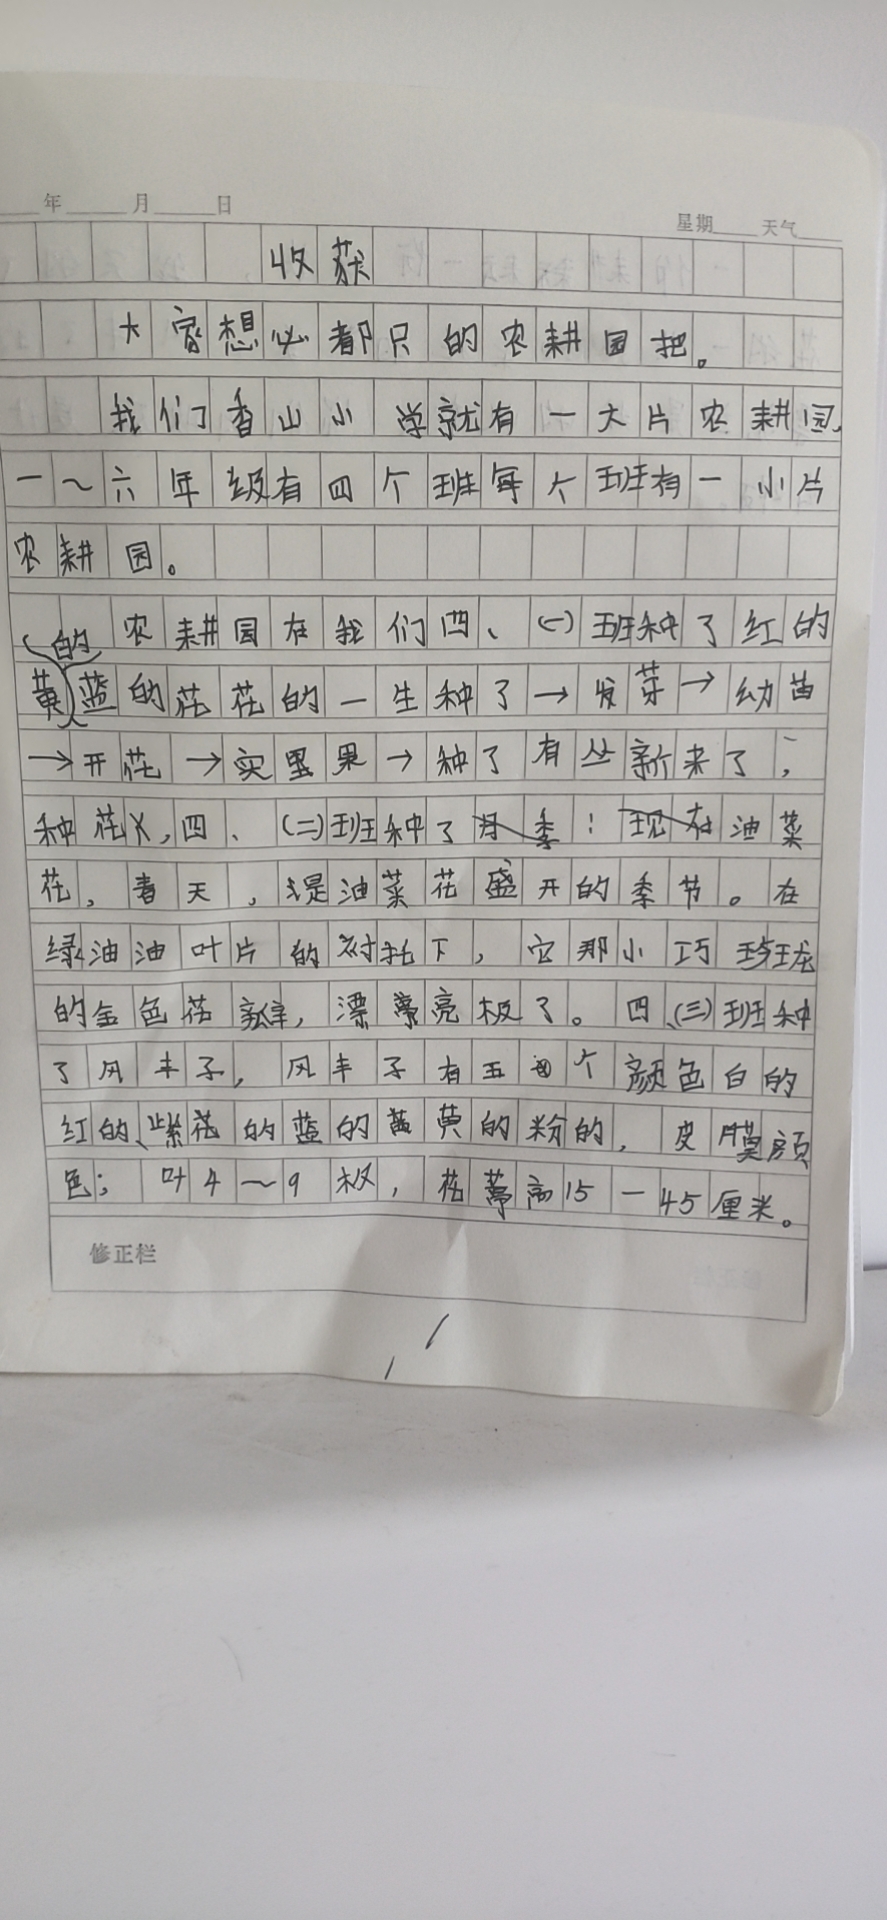 年 月 日
星期 天气
收获
大家想必都只的农耕园把。
我们香山小学就有一大片农耕园,
一～六年级有四个班每个班有一小片
农耕园。
农耕园在我们四、(一)班种了红的
黄的蓝的花花的一生种了→发芽→幼苗
→开花→实里果→种了有丛新来了;
种花, 四、(二)班种了月季!现在油菜
花,春天,是油菜花盛开的季节。在
绿油油叶片的衬托下,它那小巧玲珑
的金色花瓣,漂亮极了。四、(三)班种
了风丰子,风丰子有五个颜色白的
红的、紫花的蓝的黄的粉的,皮膜颜
色;叶4～9枚,花葶高15—45厘米。
修正栏